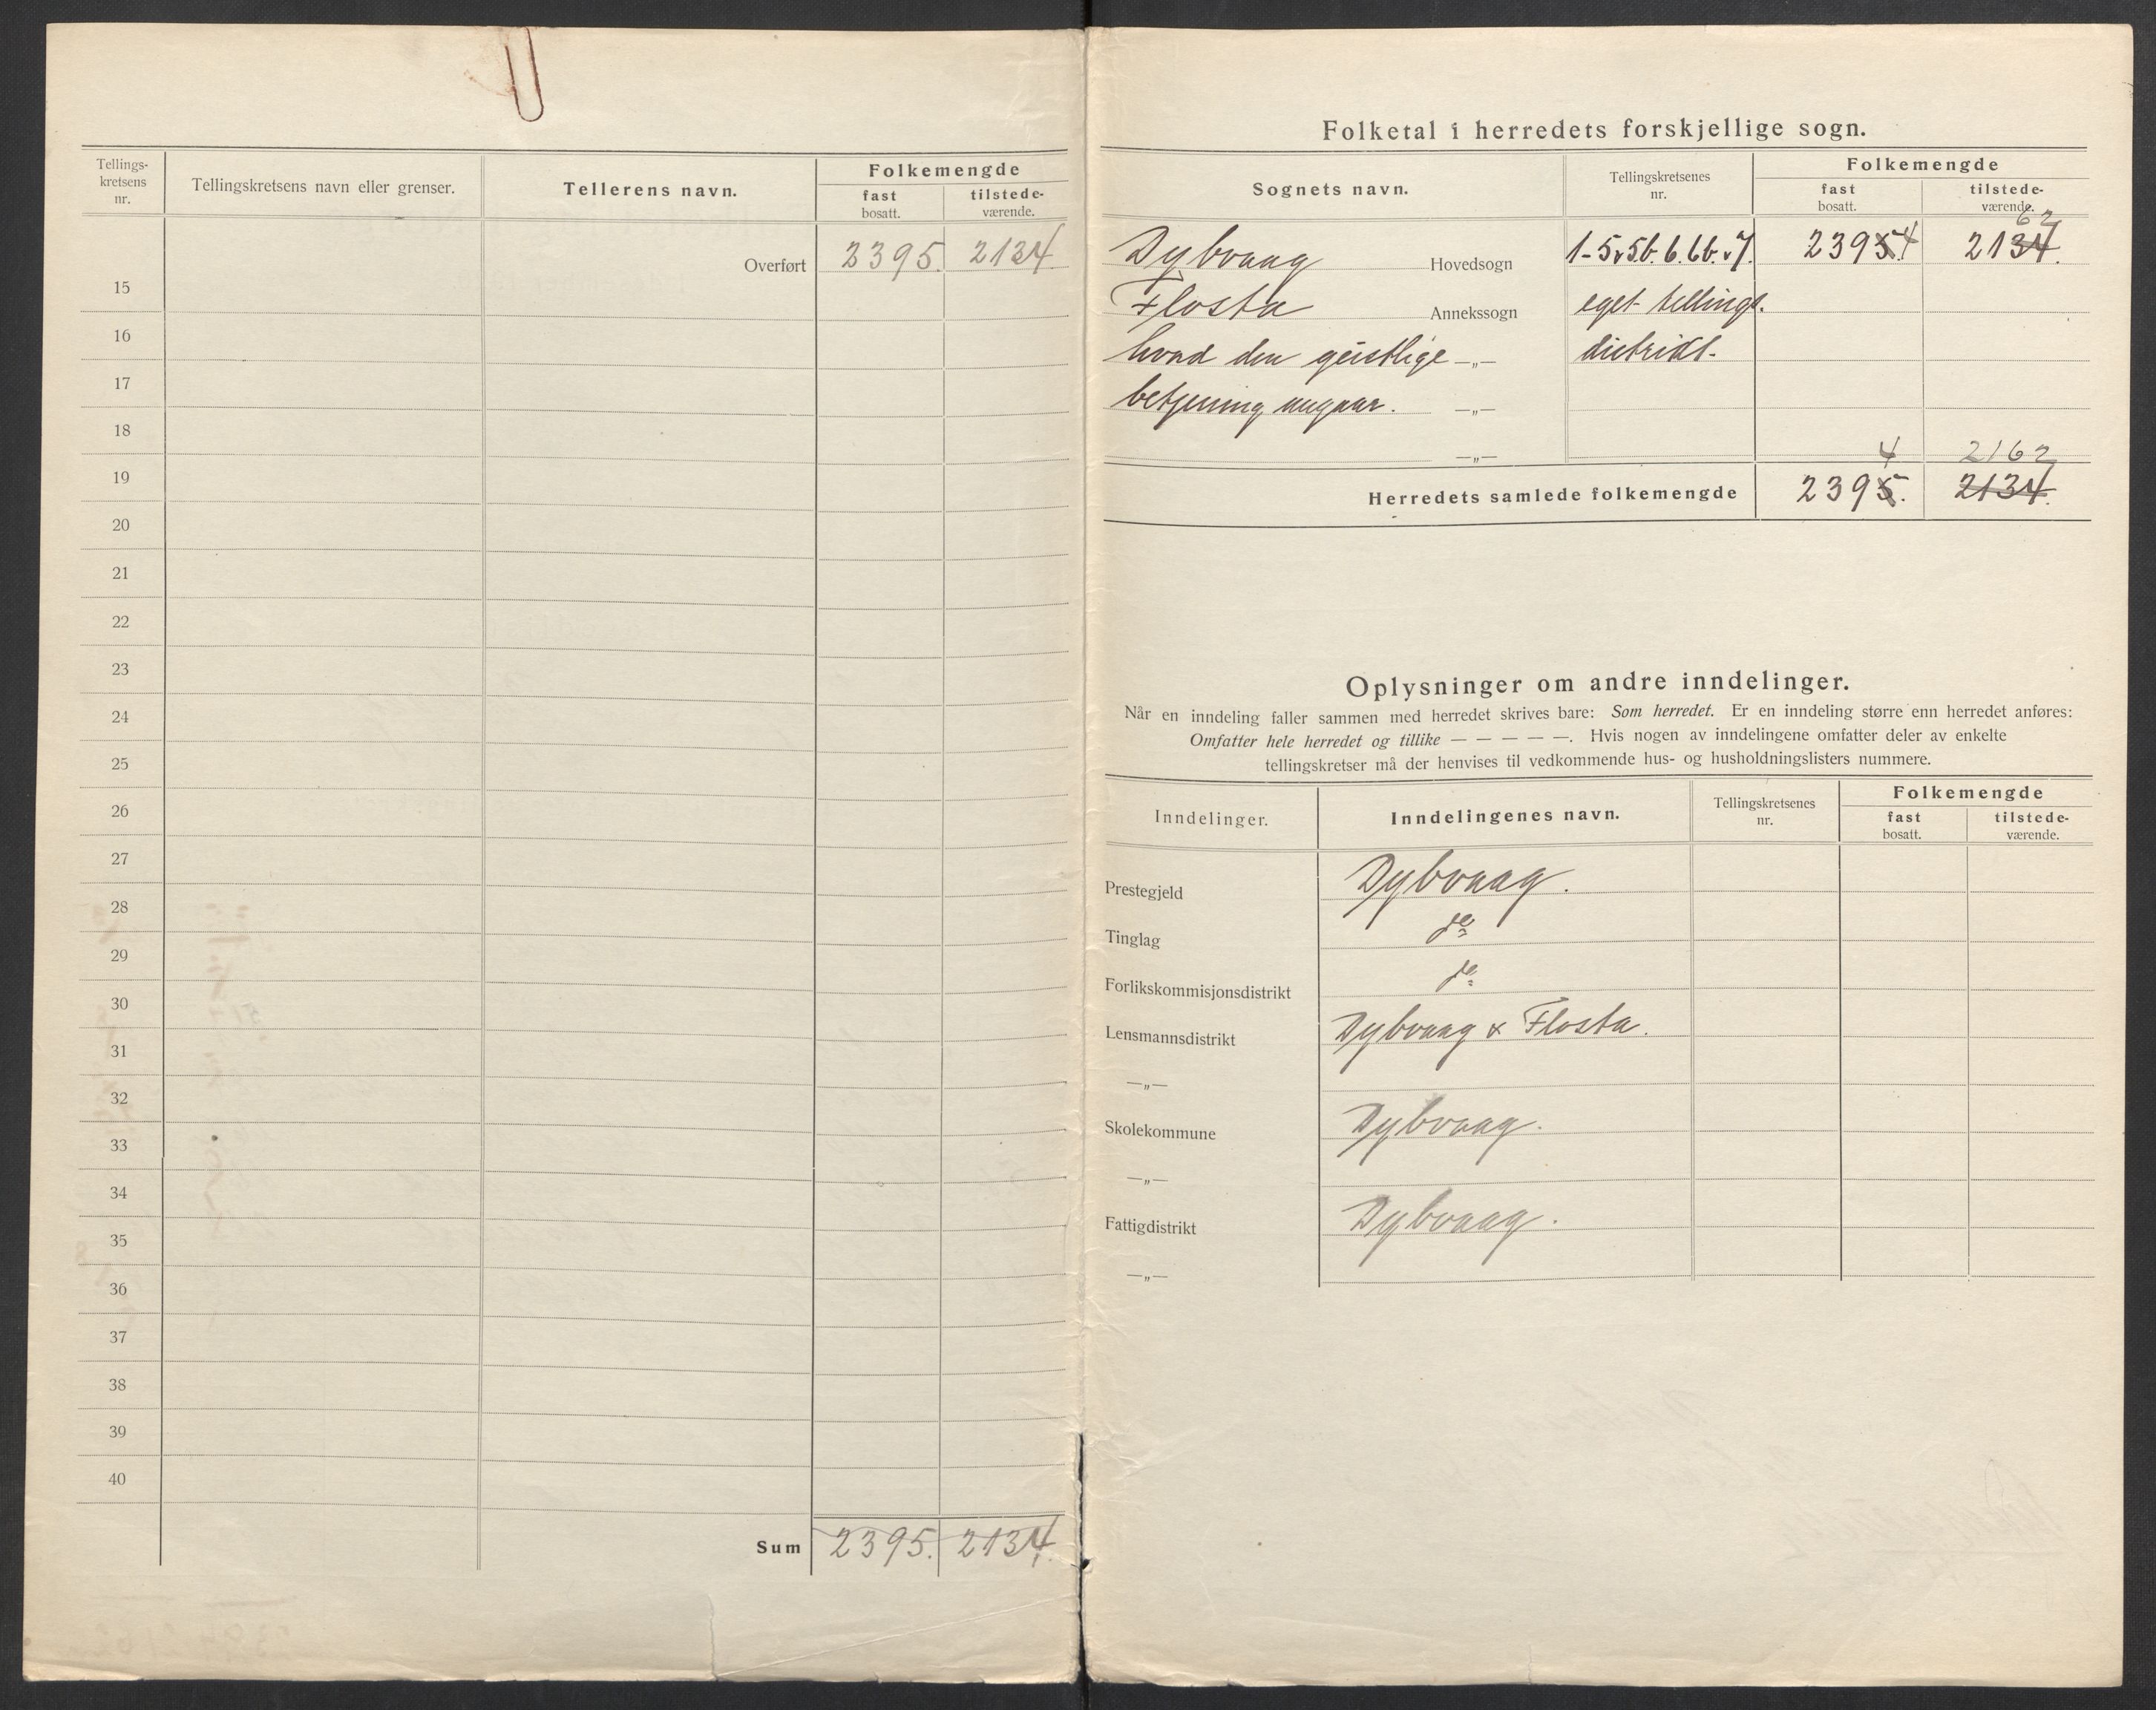 Tellings-
kretsens
nr.
Tellingskretsens navn eller grenser.
Tellerens navn.
Folkemengde
fast
bosatt.
tilstede-
værende.
Overført 2395. 2134
15
16
17
18
19
20
21
22
23
24
25
26
27
28
29
30
31
32
33
34
35
36
37
38
39
40
Sum 2395. 2134.
Folketal i herredets forskjellige sogn.
Sognets navn.
Tellingskretsenes
nr.
Folkemengde
fast
bosatt.
tilstede-
værende.
62
Dybvaag Hovedsogn 1-5, 5b. 6. 6b. 7. 2395.4 2134.
Flosta Annekssogn eget tellings.
hvad den geistlige —„— distrikt.
betjening angaar. —„—
4 2162
—„—
Herredets samlede folkemengde 2395. 2134.
Oplysninger om andre inndelinger.
Når en inndeling faller sammen med herredet skrives bare: Som herredet. Er en inndeling større enn herredet anføres:
Omfatter hele herredet og tillike — — — — —. Hvis nogen av inndelingene omfatter deler av enkelte
tellingskretser må der henvises til vedkommende hus- og husholdningslisters nummere.
Inndelinger.
Inndelingenes navn.
Tellingskretsenes
nr.
Folkemengde
fast
bosatt.
tilstede-
værende.
Prestegjeld Dybvaag.
Tinglag do
Forlikskommisjonsdistrikt do
Lensmannsdistrikt Dybvaag & Flosta.
—„—
Skolekommune Dybvaag.
—„—
Fattigdistrikt Dybvaag.
—„—